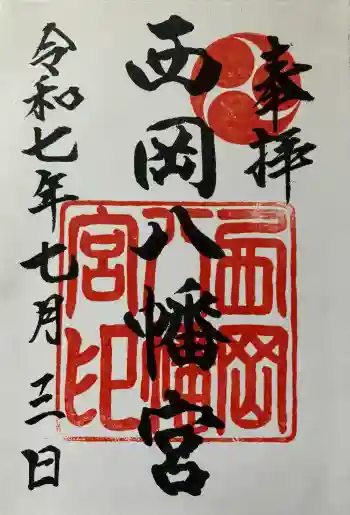 奉拝
西岡八幡宮
西岡
八幡
宮印
令和七年七月三日